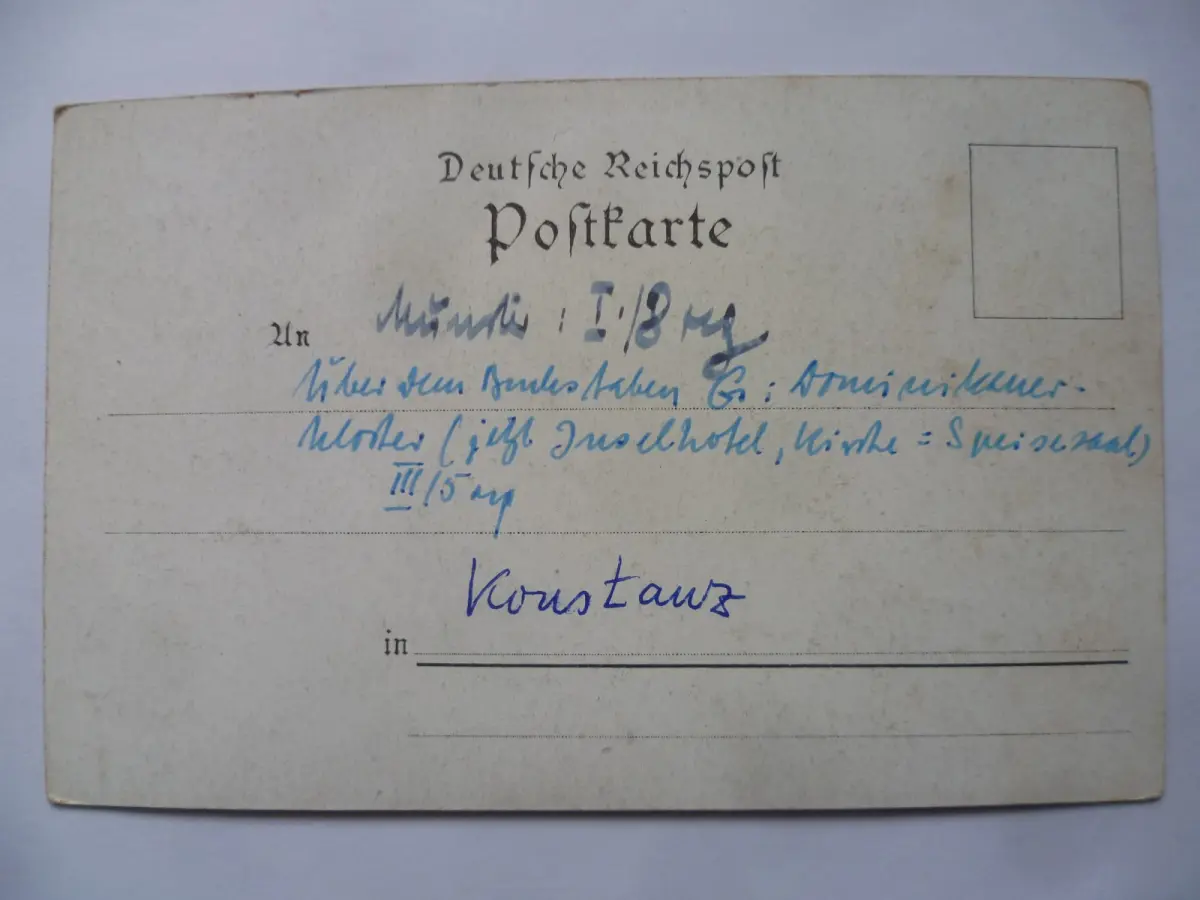 Deutsche Reichspost
Postkarte
An Münster : I./8
Über dem Buchstaben G: Dominikaner-
kloster (jetzt Inselhotel, Kirche = Speisesaal)
III/5
Konstanz
in